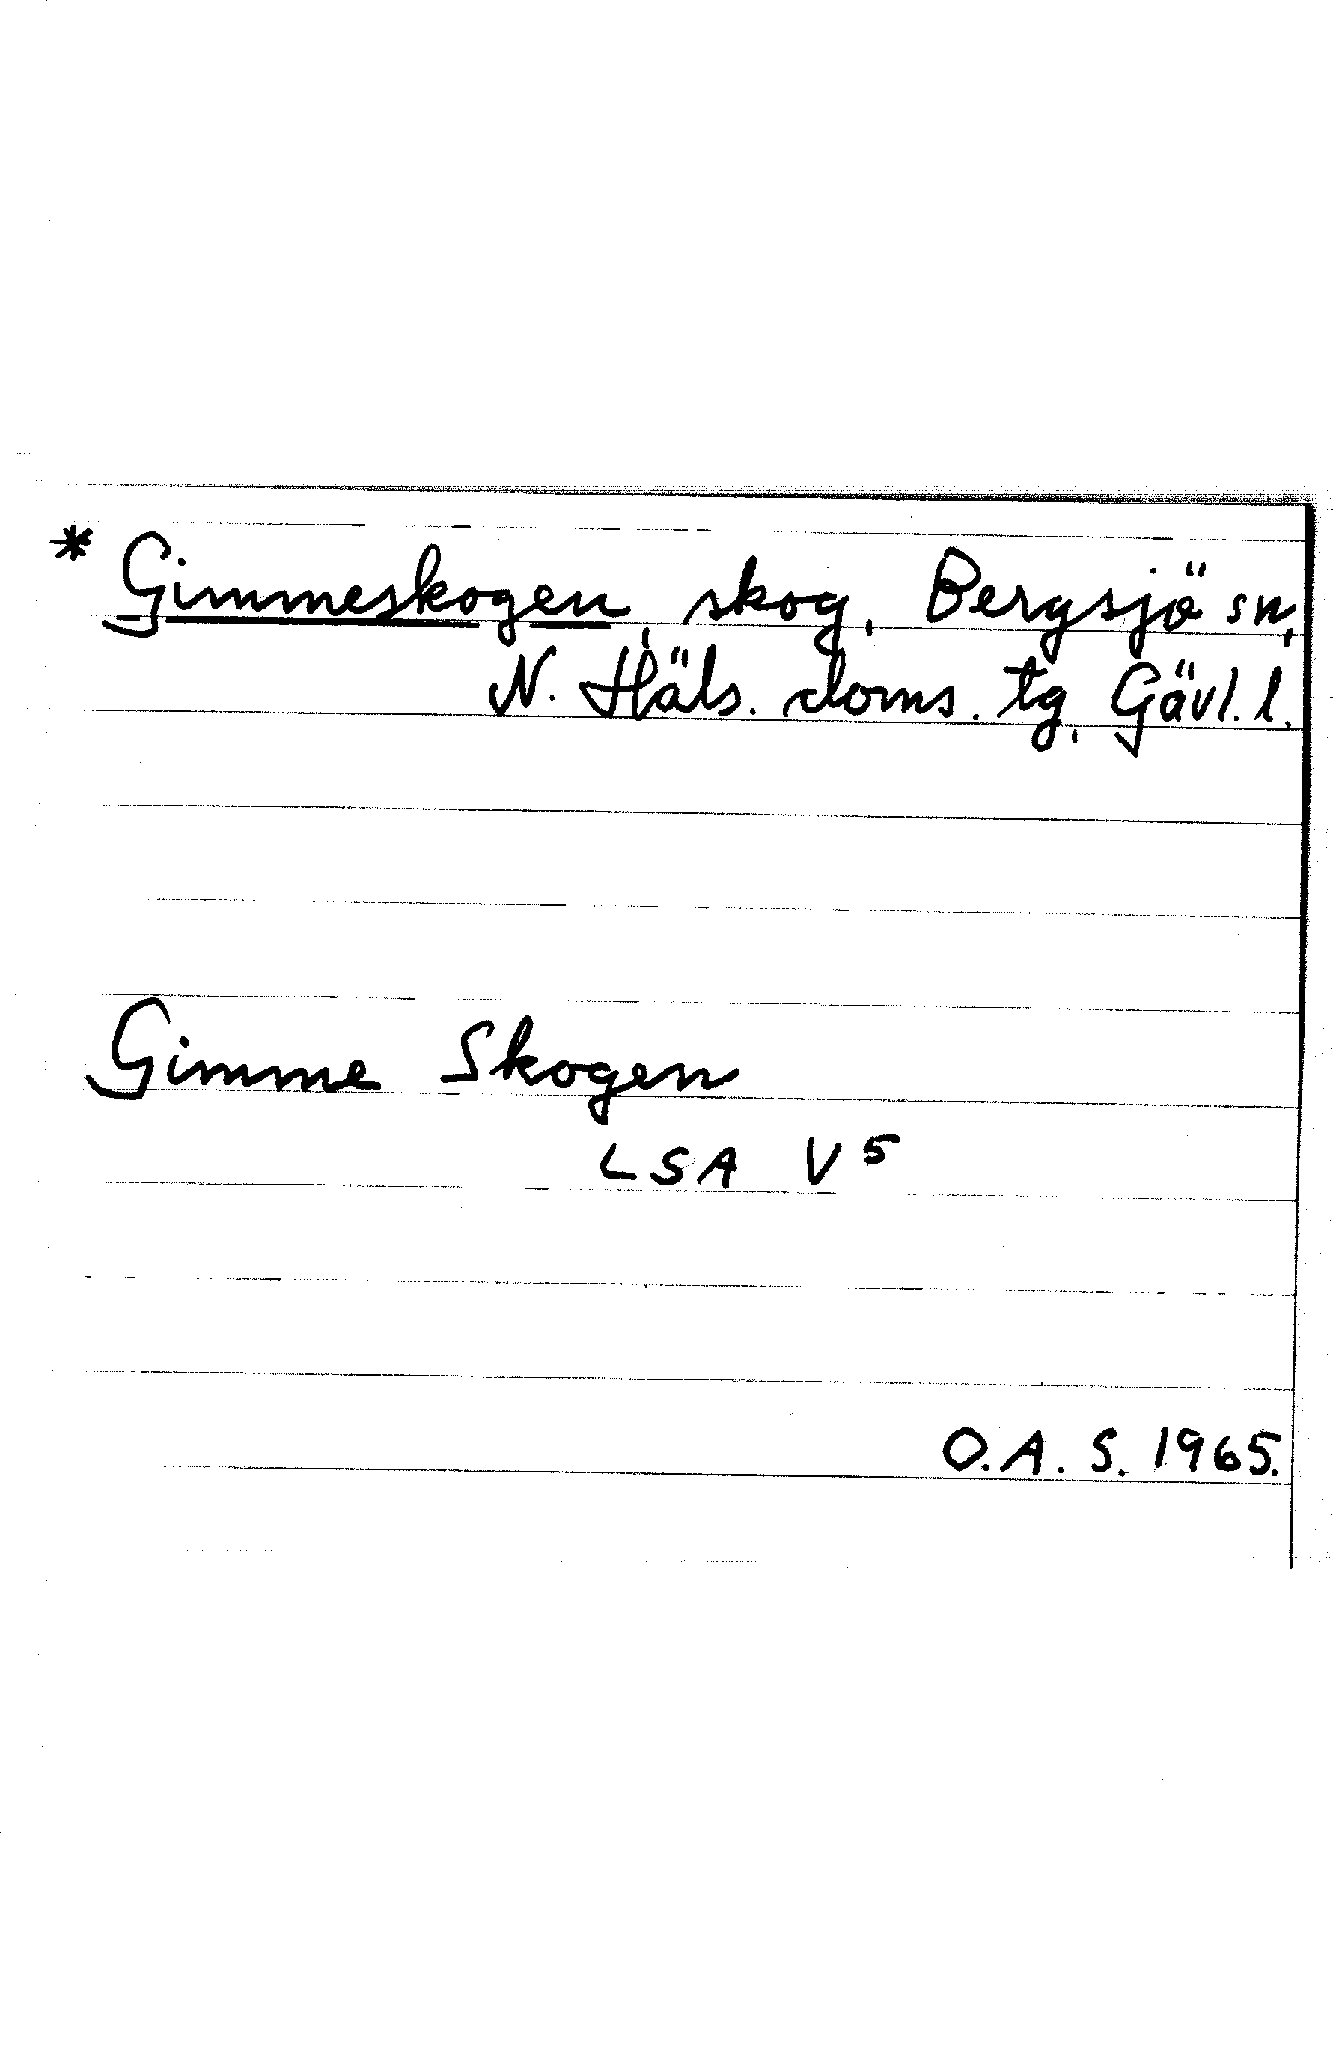 * Gimmeskogen, skog, Bergsjö sn,
N. Häls. doms. tg, Gävl. l.
Gimme Skogen
LSA V5
O.A.S. 1965.